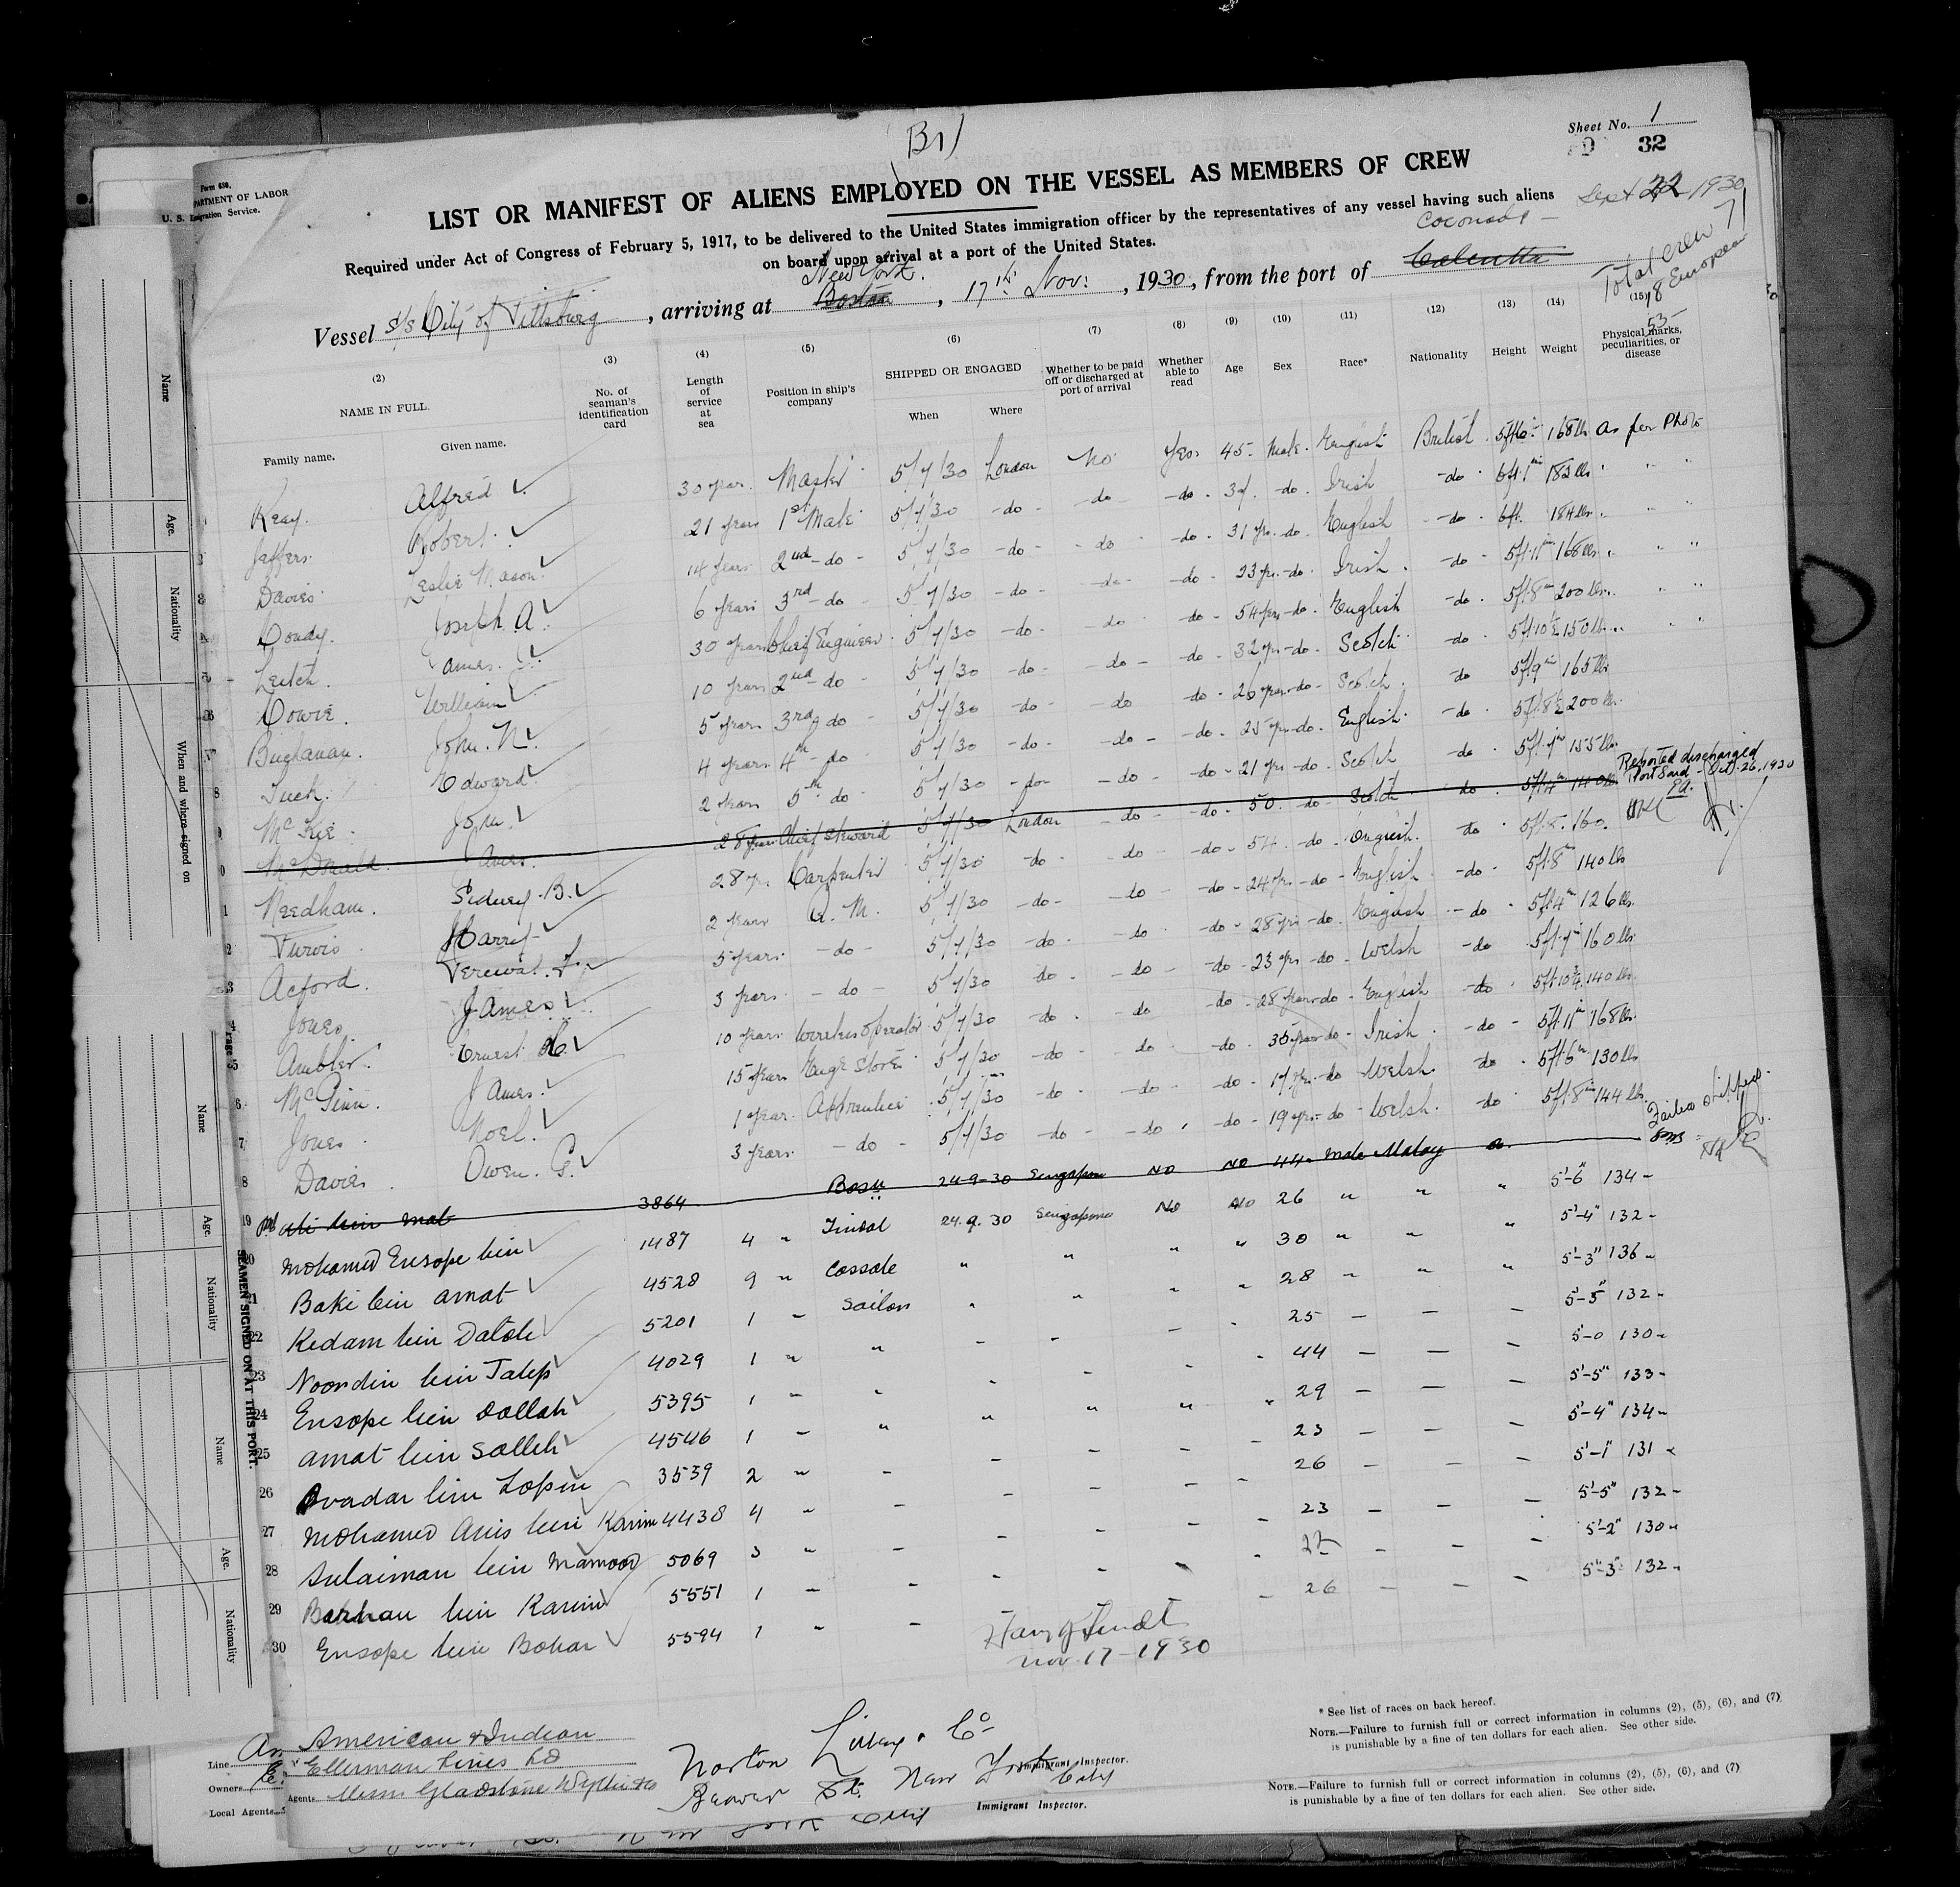 Br
Sheet No. 1
32
Form 680.
DEPARTMENT OF LABOR
U. S. Immigration Service.
LIST OR MANIFEST OF ALIENS EMPLOYED ON THE VESSEL AS MEMBERS OF CREW
Sept 22 1930
Required under Act of Congress of February 5, 1917, to be delivered to the United States immigration officer by the representatives of any vessel having such aliens
on board upon arrival at a port of the United States.
Total Crew 71
18 European
53
Vessel S/S City of Pittsburg, arriving at New York Boston, 17th Nov: , 1930, from the port of Coconada Calcutta
(2) NAME IN FULL. Family name. Given name.
(3) No. of seaman's identification card
(4) Length of service at sea
(5) Position in ship's company
(6) SHIPPED OR ENGAGED When Where
(7) Whether to be paid off or discharged at port of arrival
(8) Whether able to read
(9) Age
(10) Sex
(11) Race*
(12) Nationality
(13) Height
(14) Weight
(15) Physical marks, peculiarities, or disease
Keay. Alfred 30 years Master 5/7/30 London No Yes 45 Male English British 168 lbs As per Photo
Jeffers Robert 21 years 1st Mate 5/7/30 -do- -do -do- -do- Irish -do- 6ft 1in 182 lbs
3 Davies Leslie Mason 14 years 2nd -do- 5/7/30 -do- -do -do- 31 yrs -do- English -do- 6ft. 184 lbs
4 Joseph A. 6 years 3rd -do- 5/7/30 -do- -do- -do- 23 yrs -do- Irish -do- 5ft 11in 168 lbs
5 Leitch James 30 years Chief Engineer 5/7/30 -do- -do- -do- 54 yrs -do- English -do- 5ft 8in 200 lbs
6 Dowie William 10 years 2nd -do- 5/7/30 -do- -do- -do- 32 yrs -do- Scotch -do- 5ft 10½ 150 lbs
7 Buchanan John. N. 5 years 3rd do 5/7/30 -do- -do -do- 26 years -do- Scotch -do 5ft 9in 165 lbs
8 Tuck. Edward 4 years 4th -do 5/7/30 -do- -do- -do- 25 yrs -do- English -do- 5ft 8½ 200 lbs
9 McKie John 2 years 5th do- 5/7/30 -do- -do- -do- 21 yrs -do- Scotch -do- 155 lbs
10 McDonald James 28 years Chief Steward 5/7/30 London -do- -do- 50. -do- Scotch do- 5ft 4in 140 lbs Reported discharged Port Said - Oct. 26, 1930
11 Needham. Sidney. B. 28 yrs Carpenter 5/7/30 -do- -do- -do- 54. -do- English. -do- 5ft 8. 160.
12 Purvis Harry 2 years Q. M. 5/7/30 -do- -do- -do- 24 yrs -do- English -do- 5ft 8in 140 lbs
13 Acford. Percival. 5 years -do- 5/7/30 -do- -do- -do- 28 yrs -do- English -do- 5ft 4in 126 lbs
14 Jones James 3 years -do- 5/7/30 -do- -do- -do- 23 yrs -do- Welsh -do 160 lbs
15 Ambler Ernest H. 10 years Wireless Operator 5/7/30 -do- -do -do- 28 years -do- English -do- 5ft 10¾ 140 lbs
16 James. 15 years 5/7/30 -do- -do- -do- 35 years do- Irish -do- 5ft 11in 168 lbs
17 Jones Noel. 1 year Apprentice 5/7/30 -do- -do- -do- 17 yrs -do Welsh. -do 5ft 6in 130 lbs
18 Davies Owen. G. 3 years -do- 5/7/30 -do- -do- -do- 19 yrs -do- Welsh. -do- 5ft 8in 144 lbs
19 Md Ali bin Mat 3864 Bosu 24-9-30 Singapore NO NO 44 Male Malay Failed
20 Mohamed Ensope bin 1487 4 " Tindal 24.9.30 Singapore No NO 26 " " " 5'-6" 134 -
21 Baki bin Amat 4528 9 " Cassale " " " " 30 " " " 5'-4" 132 -
22 Kedam bin Datoh 5201 1 " Sailor " " " " 28 " " " 5'-3" 136 "
23 Noordin bin Talep 4029 1 " " - - - - 25 - - - 5'-5" 132 -
24 Ensope bin Dollah 5395 1 " " - - - - 44 - - - 5'-0 130 -
25 Amat bin Salleh 4546 1 - " " " " " 29 - - - 5'-5" 133 -
26 bin 3539 2 " - - - - - 23 - - - 5'-4" 134 -
27 Mohamed Anis bin Karim 4438 4 " - - - - - 26 - - - 5'-1" 131 -
28 Sulaiman bin Mamood 5069 3 " - - - - - 23 - - - 5'-5" 132 -
29 bin Karim 5551 1 " - - - - - 22 - - - 5'-2" 130 -
30 Ensope bin Bohar 5594 1 " - - 26 - - - 5'-3" 132 -
Nov. 17-1930
Name
Age.
Nationality
When and where signed on
Name
Age.
Nationality
SEAMEN SIGNED ON AT THIS PORT.
Name
Age.
Nationality
* See list of races on back hereof.
NOTE.—Failure to furnish full or correct information in columns (2), (5), (6), and (7)
is punishable by a fine of ten dollars for each alien. See other side.
Line American & Indian
Owners Ellerman Lines Ld
Agents Messrs Gladstone Wyllie & Co
Local Agents
Norton Lilly & Co
Beaver St. New York City
Immigrant Inspector.
Immigrant Inspector.
NOTE.—Failure to furnish full or correct information in columns (2), (5), (6), and (7)
is punishable by a fine of ten dollars for each alien. See other side.